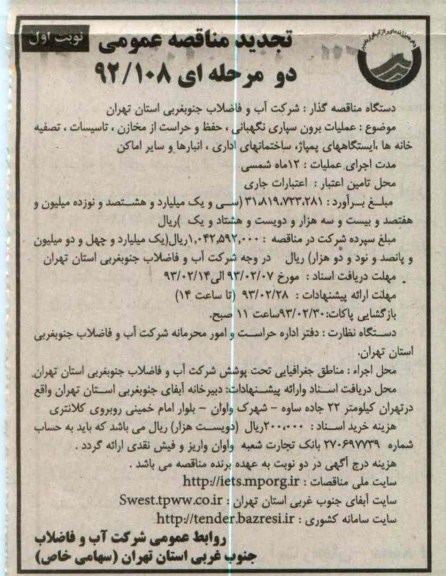 نوبت اول
تجدید مناقصه عمومی
دو مرحله ای ۹۲/۱۰۸
دستگاه مناقصه گذار : شرکت آب و فاضلاب جنوبغربی استان تهران
موضوع : عملیات برون سپاری نگهبانی ، حفظ و حراست از مخازن ، تاسیسات ، تصفیه
خانه ها ،ایستگاههای پمپاژ، ساختمانهای اداری ، انبارها و سایر اماکن
مدت اجرای عملیات : ۱۲ماه شمسی
محل تامین اعتبار : اعتبارات جاری
مبلغ برآورد : ۳۱،۸۱۹،۷۲۳،۲۸۱ (سی و یک میلیارد و هشتصد و نوزده میلیون و
هفتصد و بیست و سه هزار و دویست و هشتاد و یک )ریال
مبلغ سپرده شرکت در مناقصه : ۱،۰۴۲،۵۹۲،۰۰۰ریال(یک میلیارد و چهل و دو میلیون
و پانصد و نود و دو هزار) ریال در وجه شرکت آب و فاضلاب جنوبغربی استان تهران
مهلت دریافت اسناد : مورخ ۹۳/۰۲/۰۷ الی۹۳/۰۲/۱۴
مهلت ارائه پیشنهادات : ۹۳/۰۲/۲۸ (تا ساعت ۱۴)
بازگشایی پاکات:۹۳/۰۲/۳۰ساعت ۱۱ صبح.
دستگاه نظارت : دفتر اداره حراست و امور محرمانه شرکت آب و فاضلاب جنوبغربی
استان تهران.
محل اجراء : مناطق جغرافیایی تحت پوشش شرکت آب و فاضلاب جنوبغربی استان تهران
محل دریافت اسناد وارائه پیشنهادات: دبیرخانه آبفای جنوبغربی استان تهران واقع
درتهران کیلومتر ۲۲ جاده ساوه - شهرک واوان - بلوار امام خمینی روبروی کلانتری
هزینه خرید اسناد : ۲۰۰،۰۰۰ریال (دویست هزار) ریال می باشد که باید به حساب
شماره ۲۷۰۶۹۷۷۳۹ بانک تجارت شعبه واوان واریز و فیش نقدی ارائه گردد .
هزینه درج آگهی در دو نوبت به عهده برنده مناقصه می باشد .
سایت ملی مناقصات : http://iets.mporg.ir
سایت آبفای جنوب غربی استان تهران : Swest.tpww.co.ir
سایت سامانه کشوری : http://tender.bazresi.ir
روابط عمومی شرکت آب و فاضلاب
جنوب غربی استان تهران (سهامی خاص)